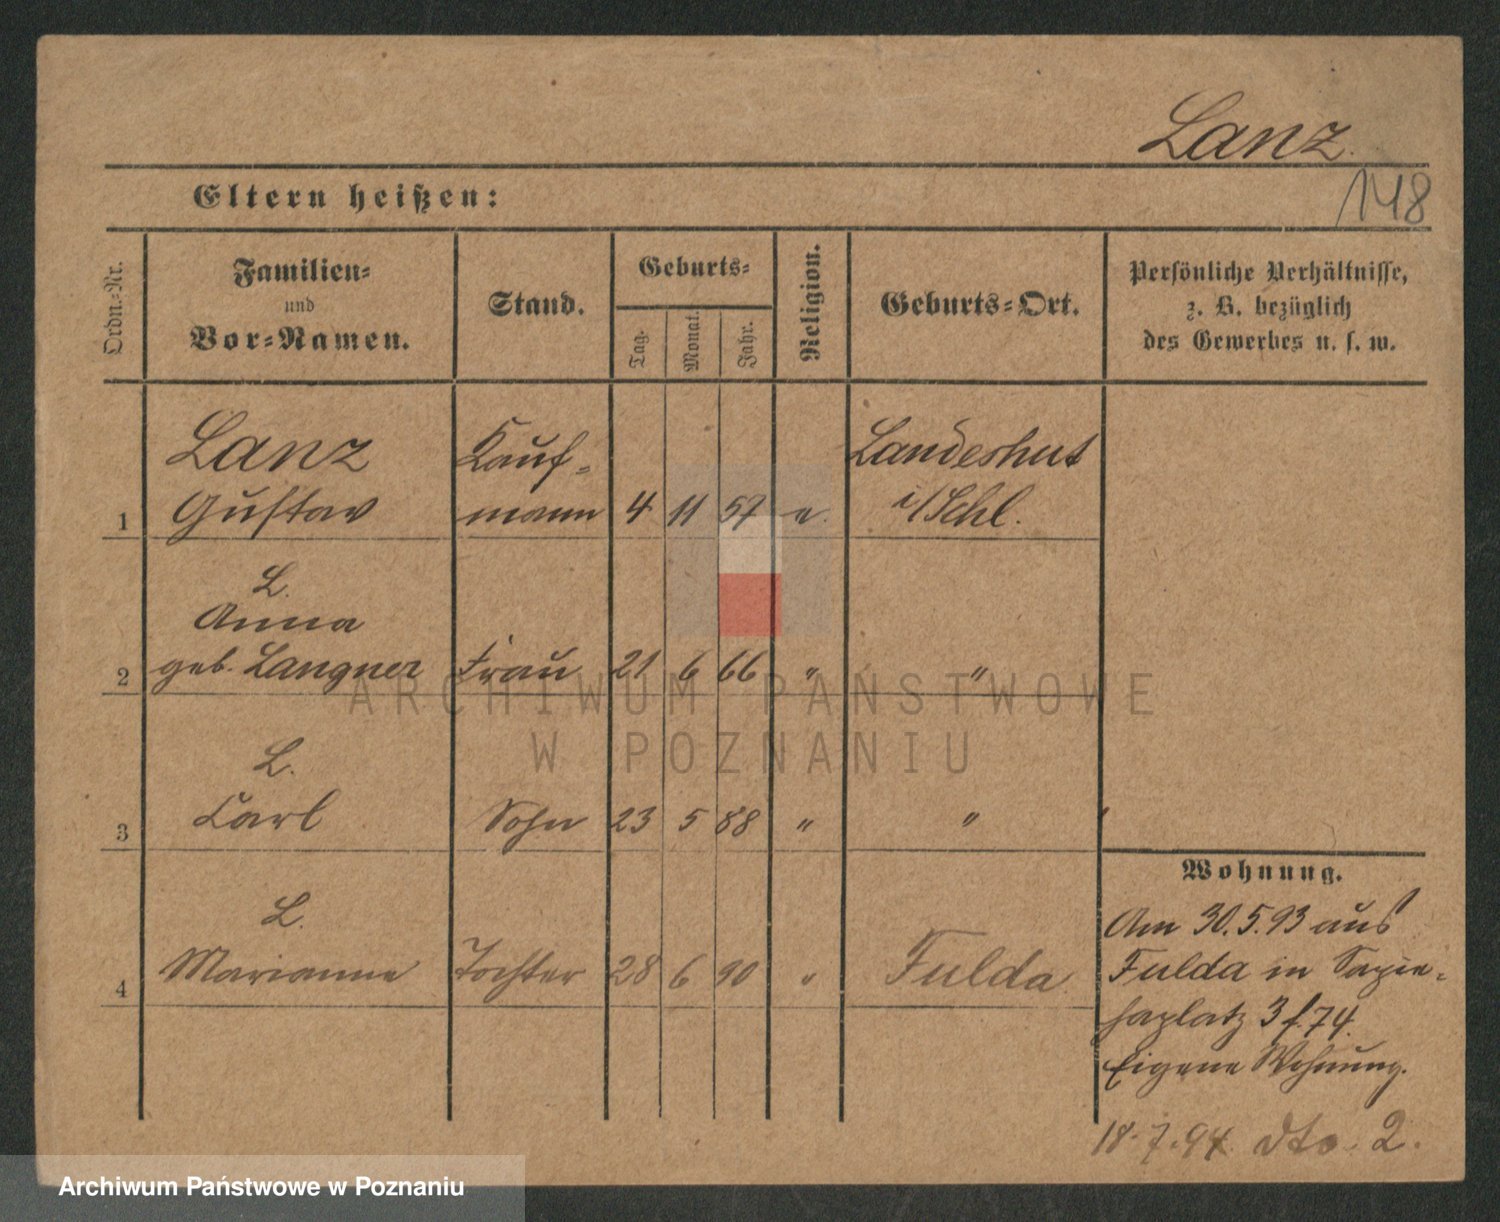 Lanz.
148
Eltern heißen:
Ordn.-Nr.
Familien-
und
Vor-Namen.
Stand.
Geburts-
Tag.
Monat.
Jahr.
Religion.
Geburts-Ort.
Persönliche Verhältnisse,
z. B. bezüglich
des Gewerbes u. s. w.
Lanz Kauf- Landeshut
1 Gustav mann 4 11 57 e. i/Schl.
L.
Anna
2 geb. Langner Frau 21 6 66 " "
L.
3 Carl Sohn 23 5 88 " "
L.
4 Marianne Tochter 28 6 90 " Fulda.
Wohnung.
Am 30.5.93 aus
Fulda in Sapie-
haplatz 3 f. 74.
Eigene Wohnung.
18.7.94. dto. 2.
ARCHIWUM PAŃSTWOWE
W POZNANIU
Archiwum Państwowe w Poznaniu